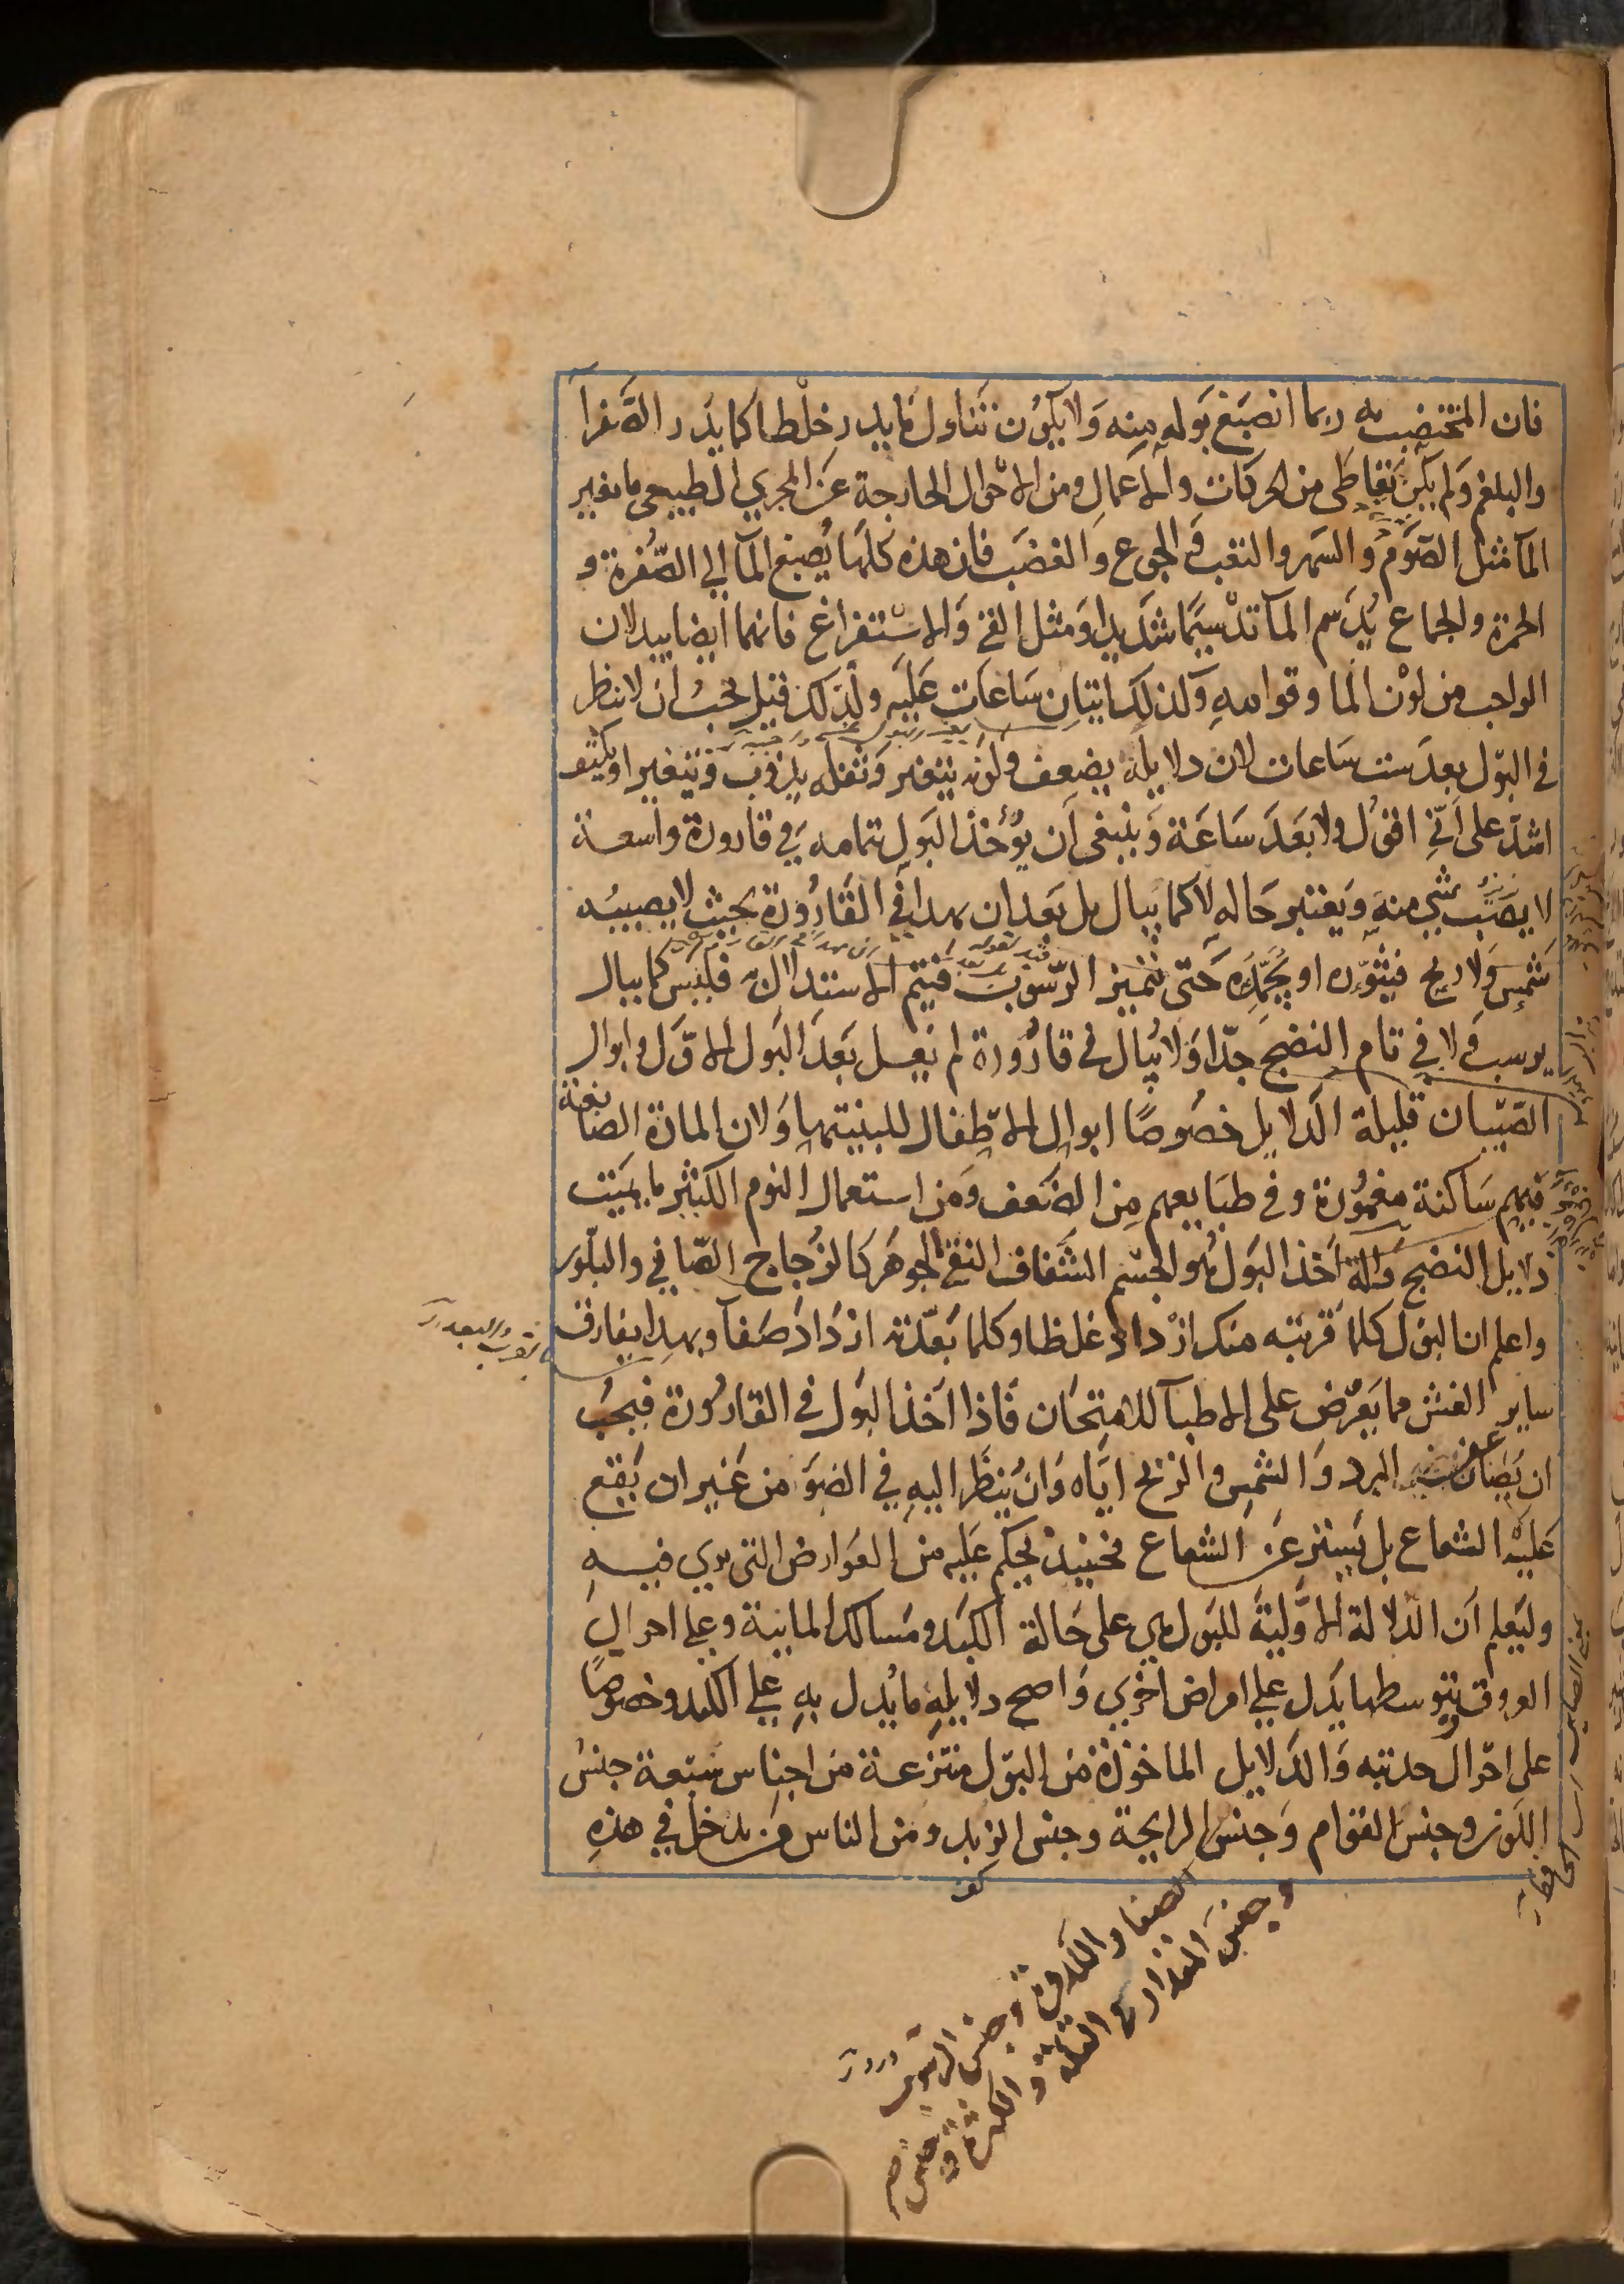 فان المختضب به ربما انصبغ بوله منه ولا يكون تناول ما يدر خلطا كما يدر الصفرآ
والبلغم ولم يكن تعاطى من الحركات والاعمال ومن الاحوال الخارجة عن المجرى الطبيعى ما يغير
المآ مثل الصوم والسهر والتعب والجوع والغضب فان هذه كلها يصبغ المآ الى الصفرة و
الحمرة والجماع يدسم المآ تدسيما شديدا ومثل القى والاستفراغ فانهما ايضا يبدلان
الواجب من لون الما وقوامه وكذلك اتيان ساعات عليه ولذلك قيل يجب ان لا ينظر
فى البول بعد ست ساعات لان دلايله يضعف ولونه يتغير وثفله يذوب ويتغير او يكثف
اشد على انى اقول ولا بعد ساعة وينبغى ان يؤخذ البول بتمامه فى قارورة واسعة
لا يصب شى منه ويعتبر حاله لا كما يبال بل بعد ان يهدا فى القارورة بحيث لا يصيبه
شمس ولا ريح فيثوره او يجمده حتى يتميز الرسوب فيتم الاستدلال فليس كما يبال
يرسب ولا فى تام النضج جدا ولا يبال فى قارورة لم تغسل بعد البول الاول وابوال
الصبيان قليلة الدلايل خصوصا ابوال الاطفال للبنيتها ولان المادة الصابغة
فيهم ساكنة مغمورة وفى طبايعهم من الضعف ومن استعمال النوم الكثير ما يميت
دلايل النضج وآلة اخذ البول هو الجسم الشفاف النقى الجوهر كالزجاج الصافى والبلور
واعلم ان البول كلما قربته منك ازداد غلظا وكلما بعدته ازداد صفآ وبهذا يفارق
ساير الغش مما يعرض على الاطبآ للامتحان فاذا اخذ البول فى القارورة فيجب
ان يصان عن تغيير البرد والشمس والريح اياه وان ينظر اليه فى الضو من غير ان يقع
عليه الشعاع بل يستتر عن الشعاع فحينيذ يحكم عليه من العوارض التى يرى فيه
وليعلم ان الدلالة الاولية للبول هى على حالة الكبد ومسالك المايية وعلى احوال
العروق بتوسطها يدل على امراض اخرى واصح دلايله ما يدل به على الكبد وخصوصا
على احوال حدبته والدلايل الماخوذة من البول منتزعة من اجناس سبعة جنس
اللون وجنس القوام وجنس الرايحة وجنس الزبد ومن الناس من يدخل فى هذه
وجنس الصفا والكدورة وجنس الرسوب
وجنس المقدار فى القلة والكثرة